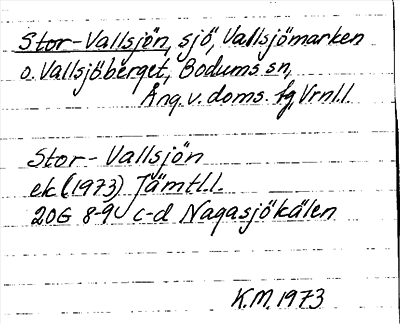 Stor-Vallsjön, sjö, Vallsjömarken
o. Vallsjöberget, Bodums sn,
Ång. v. doms. fg, Vrnl.l.
Stor-Vallsjön
ek (1973) Jämtl.l.
20G 8-9 c-d Nagasjökälen
K.M. 1973